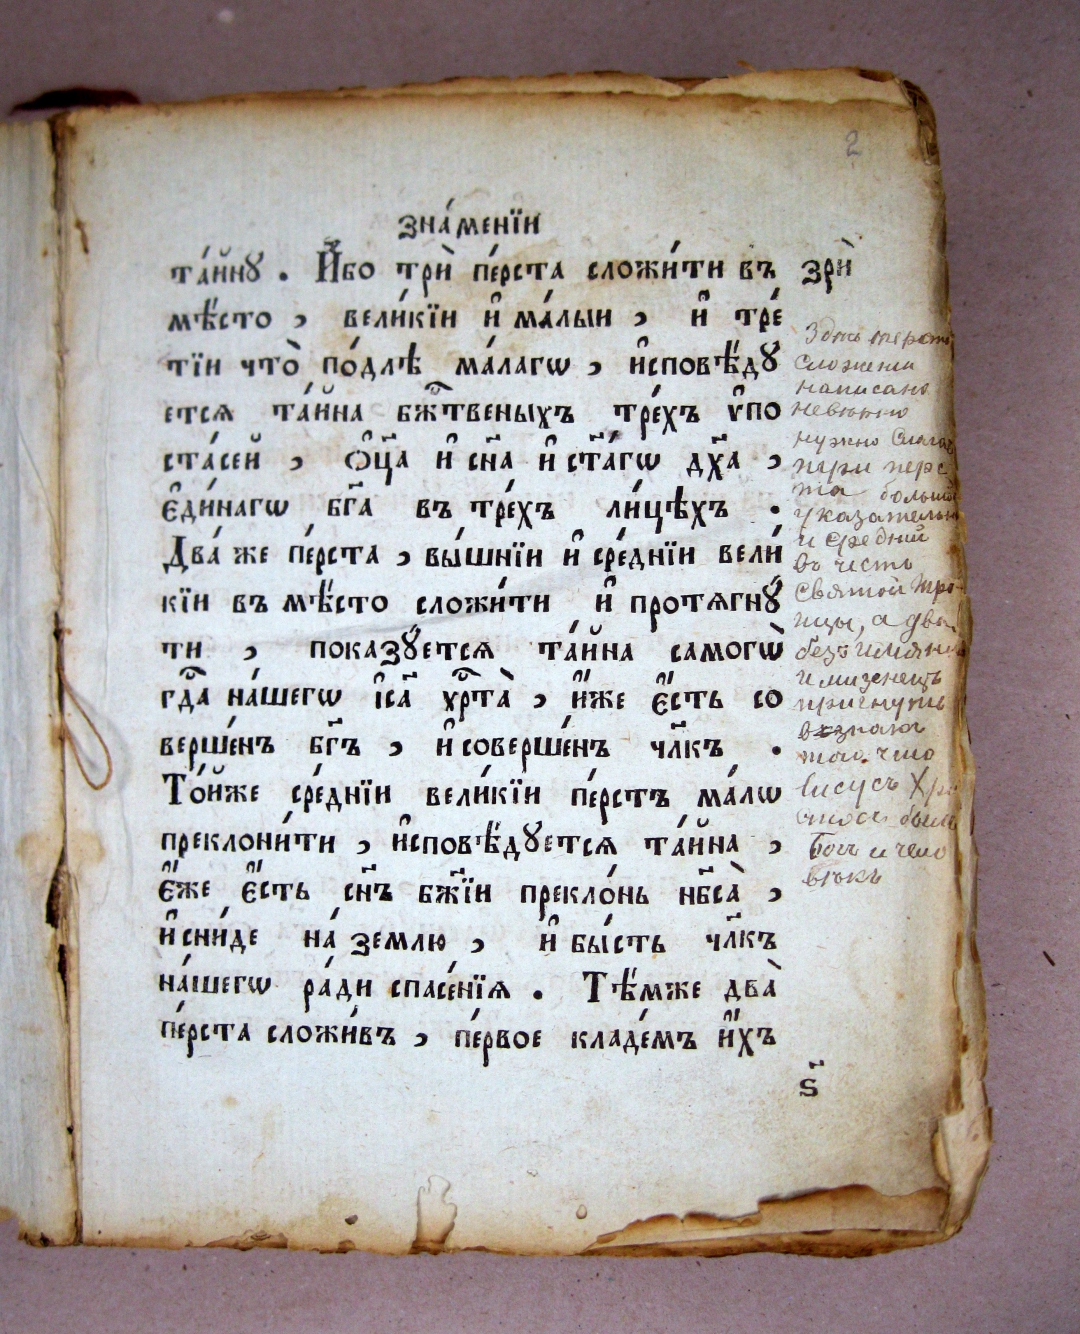 2
зна́менїи
та́йнꙋ . И҆́бо трѝ пе́рста сложи́ти въ
мѣ́сто , вели́кїи и҆ ма́лыи , и҆ тре́
тїи что̀ по́длѣ ма́лагѡ , и҆сповѣ́дꙋ
ется та́йна бж҃твеныхъ тре́хъ ѵ҆по
ста́сей , ѻ҆ц҃а и҆ сн҃а и҆ ст҃а́гѡ дх҃а ,
є҆ди́нагѡ бг҃а въ тре́хъ ли́цѣхъ .
Два́ же пе́рста , вы́шнїи и҆ сре́днїи вели́
кїи въ мѣ́сто сложи́ти и҆ протягнꙋ́
ти , показꙋ́ется та́йна самогѡ̀
гд҃а на́шегѡ і҆са҃ хр҃та̀ , и҆́же є҆́сть со
верше́нъ бг҃ъ , и҆ соверше́нъ чл҃къ .
То́йже сре́днїи вели́кїи пе́рстъ ма́лѡ
преклони́ти , и҆сповѣ́дꙋется та́йна ,
є҆́же є҆́сть сн҃ъ бж҃їи прекло́нь нб҃са̀ ,
и҆ сни́де на́ землю , и҆ бы́сть чл҃къ
на́шегѡ ра́ди спасе́нїя . Тѣ́мже два̀
пе́рста сложи́въ , пе́рвое кладе́мъ и҆́хъ
ѕ҃
зрѝ
Здѣсь
сложении
написано
невѣрно
нужно
перс
та
указательн
и средний
въ честь
Святой Тро
ицы, а два
безъимянн
и мизенецъ
пригнуть
того что
Іисусъ Хри
Богъ и чело
вѣкъ